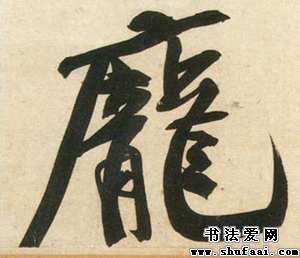 龐
书法爱网
www.shufaai.com